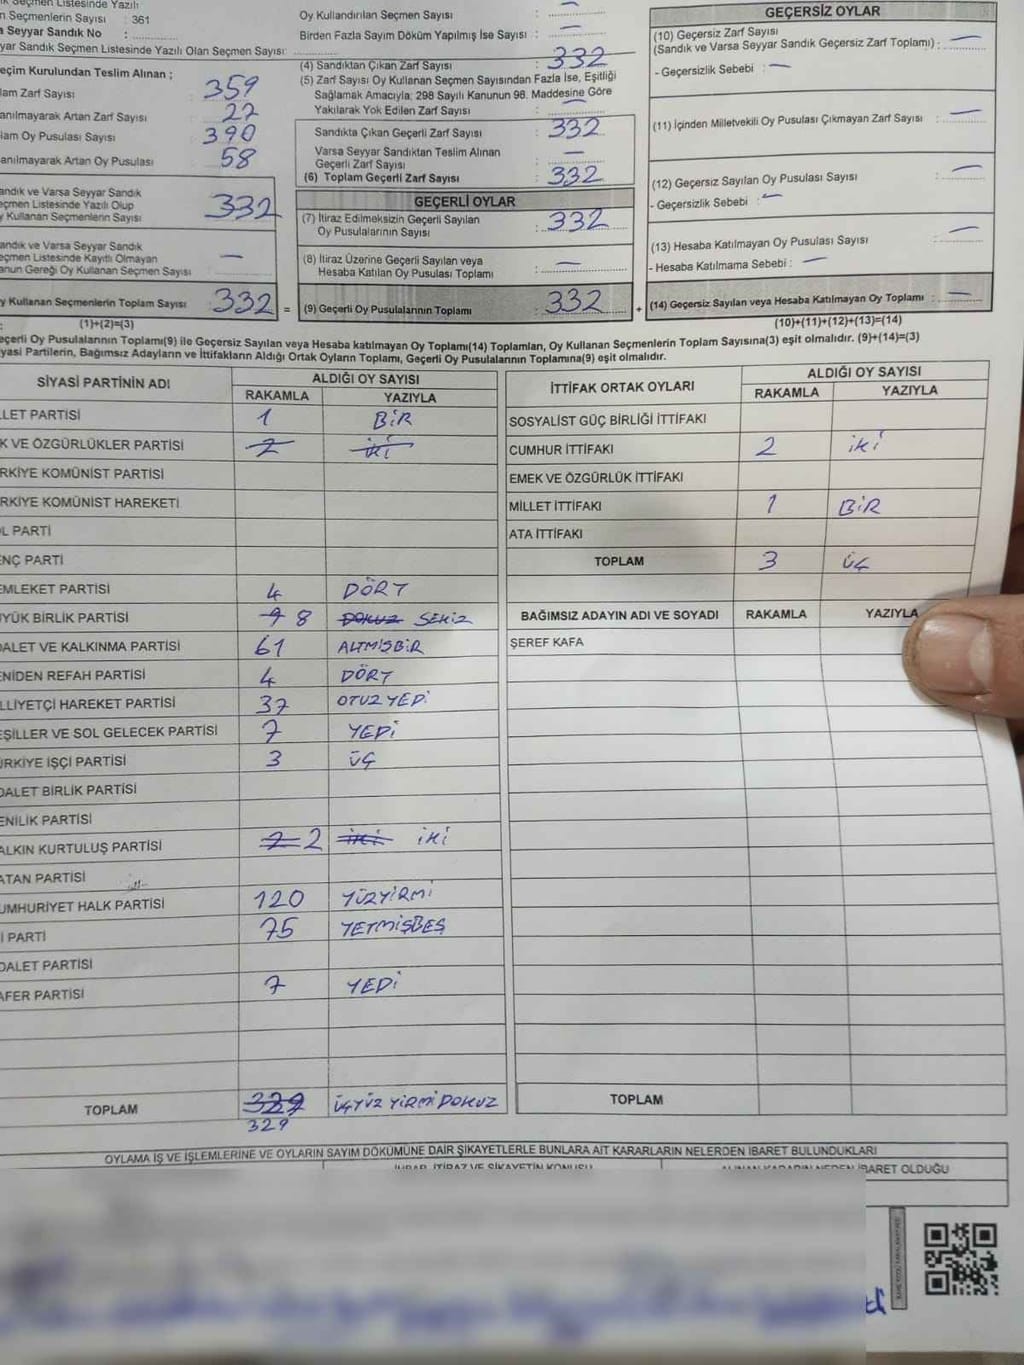 Seçmen Listesinde Yazılı
Seçmenlerin Sayısı : 361
Seyyar Sandık No :
Seyyar Sandık Seçmen Listesinde Yazılı Olan Seçmen Sayısı:
Seçim Kurulundan Teslim Alınan ;
Zarf Sayısı 359
Artan Zarf Sayısı 27
Oy Pusulası Sayısı 390
Artan Oy Pusulası 58
Sandık ve Varsa Seyyar Sandık
Seçmen Listesinde Yazılı Olup
Oy Kullanan Seçmenlerin Sayısı 332
Sandık ve Varsa Seyyar Sandık
Seçmen Listesinde Kayıtlı Olmayan
Kanun Gereği Oy Kullanan Seçmen Sayısı : —
Oy Kullanan Seçmenlerin Toplam Sayısı : 332 =
(1)+(2)=(3)
Oy Kullandırılan Seçmen Sayısı : —
Birden Fazla Sayım Döküm Yapılmış İse Sayısı : —
(4) Sandıktan Çıkan Zarf Sayısı : 332
(5) Zarf Sayısı Oy Kullanan Seçmen Sayısından Fazla İse, Eşitliği
Sağlamak Amacıyla; 298 Sayılı Kanunun 98. Maddesine Göre
Yakılarak Yok Edilen Zarf Sayısı : —
Sandıkta Çıkan Geçerli Zarf Sayısı : 332
Varsa Seyyar Sandıktan Teslim Alınan
Geçerli Zarf Sayısı : —
(6) Toplam Geçerli Zarf Sayısı : 332
GEÇERLİ OYLAR
(7) İtiraz Edilmeksizin Geçerli Sayılan
Oy Pusulalarının Sayısı : 332
(8) İtiraz Üzerine Geçerli Sayılan veya
Hesaba Katılan Oy Pusulası Toplamı : —
(9) Geçerli Oy Pusulalarının Toplamı : 332 +
GEÇERSİZ OYLAR
(10) Geçersiz Zarf Sayısı
(Sandık ve Varsa Seyyar Sandık Geçersiz Zarf Toplamı) : —
- Geçersizlik Sebebi : —
(11) İçinden Milletvekili Oy Pusulası Çıkmayan Zarf Sayısı : —
(12) Geçersiz Sayılan Oy Pusulası Sayısı : —
- Geçersizlik Sebebi : —
(13) Hesaba Katılmayan Oy Pusulası Sayısı : —
- Hesaba Katılmama Sebebi : —
(14) Geçersiz Sayılan veya Hesaba Katılmayan Oy Toplamı : —
(10)+(11)+(12)+(13)=(14)
Geçerli Oy Pusulalarının Toplamı(9) ile Geçersiz Sayılan veya Hesaba katılmayan Oy Toplamı(14) Toplamları, Oy Kullanan Seçmenlerin Toplam Sayısına(3) eşit olmalıdır. (9)+(14)=(3)
Siyasi Partilerin, Bağımsız Adayların ve İttifakların Aldığı Ortak Oyların Toplamı, Geçerli Oy Pusulalarının Toplamına(9) eşit olmalıdır.
SİYASİ PARTİNİN ADI ALDIĞI OY SAYISI
RAKAMLA YAZIYLA
LLET PARTİSİ 1 BİR
K VE ÖZGÜRLÜKLER PARTİSİ 2 İKİ
RKİYE KOMÜNİST PARTİSİ
RKİYE KOMÜNİST HAREKETİ
L PARTİ
NÇ PARTİ
EMLEKET PARTİSİ 4 DÖRT
YÜK BİRLİK PARTİSİ 9 8 DOKUZ SEKİZ
DALET VE KALKINMA PARTİSİ 61 ALTMIŞBİR
ENİDEN REFAH PARTİSİ 4 DÖRT
LLİYETÇİ HAREKET PARTİSİ 37 OTUZYEDİ
EŞİLLER VE SOL GELECEK PARTİSİ 7 YEDİ
ÜRKİYE İŞÇİ PARTİSİ 3 ÜÇ
DALET BİRLİK PARTİSİ
ENİLİK PARTİSİ
ALKIN KURTULUŞ PARTİSİ 2 2 İKİ İKİ
ATAN PARTİSİ
UMHURİYET HALK PARTİSİ 120 YÜZYİRMİ
İ PARTİ 75 YETMİŞBEŞ
DALET PARTİSİ
AFER PARTİSİ 7 YEDİ
TOPLAM 329 ÜÇYÜZ YİRMİ DOKUZ
329
İTTİFAK ORTAK OYLARI ALDIĞI OY SAYISI
RAKAMLA YAZIYLA
SOSYALİST GÜÇ BİRLİĞİ İTTİFAKI
CUMHUR İTTİFAKI 2 İKİ
EMEK VE ÖZGÜRLÜK İTTİFAKI
MİLLET İTTİFAKI 1 BİR
ATA İTTİFAKI
TOPLAM 3 ÜÇ
BAĞIMSIZ ADAYIN ADI VE SOYADI RAKAMLA YAZIYLA
ŞEREF KAFA
TOPLAM
OYLAMA İŞ VE İŞLEMLERİNE VE OYLARIN SAYIM DÖKÜMÜNE DAİR ŞİKAYETLERLE BUNLARA AİT KARARLARIN NELERDEN İBARET BULUNDUKLARI
İHBAR, İTİRAZ VE ŞİKAYETİN KONUSU ALINAN KARARIN NEDEN İBARET OLDUĞU